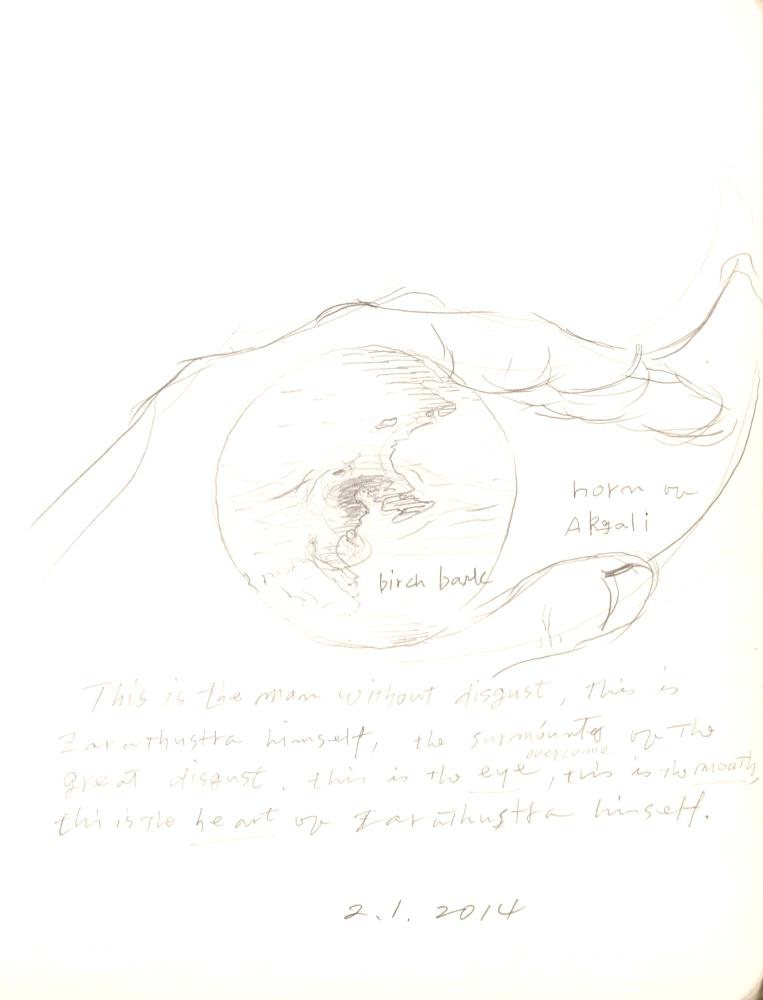 horn on
Akgali
birch bark
This is the man without disgust, this is
Zarathustra himself, the surmounter of the
overcome
great disgust, this is the eye, this is the mouth,
this is the heart of Zarathustra himself.
2.1. 2014